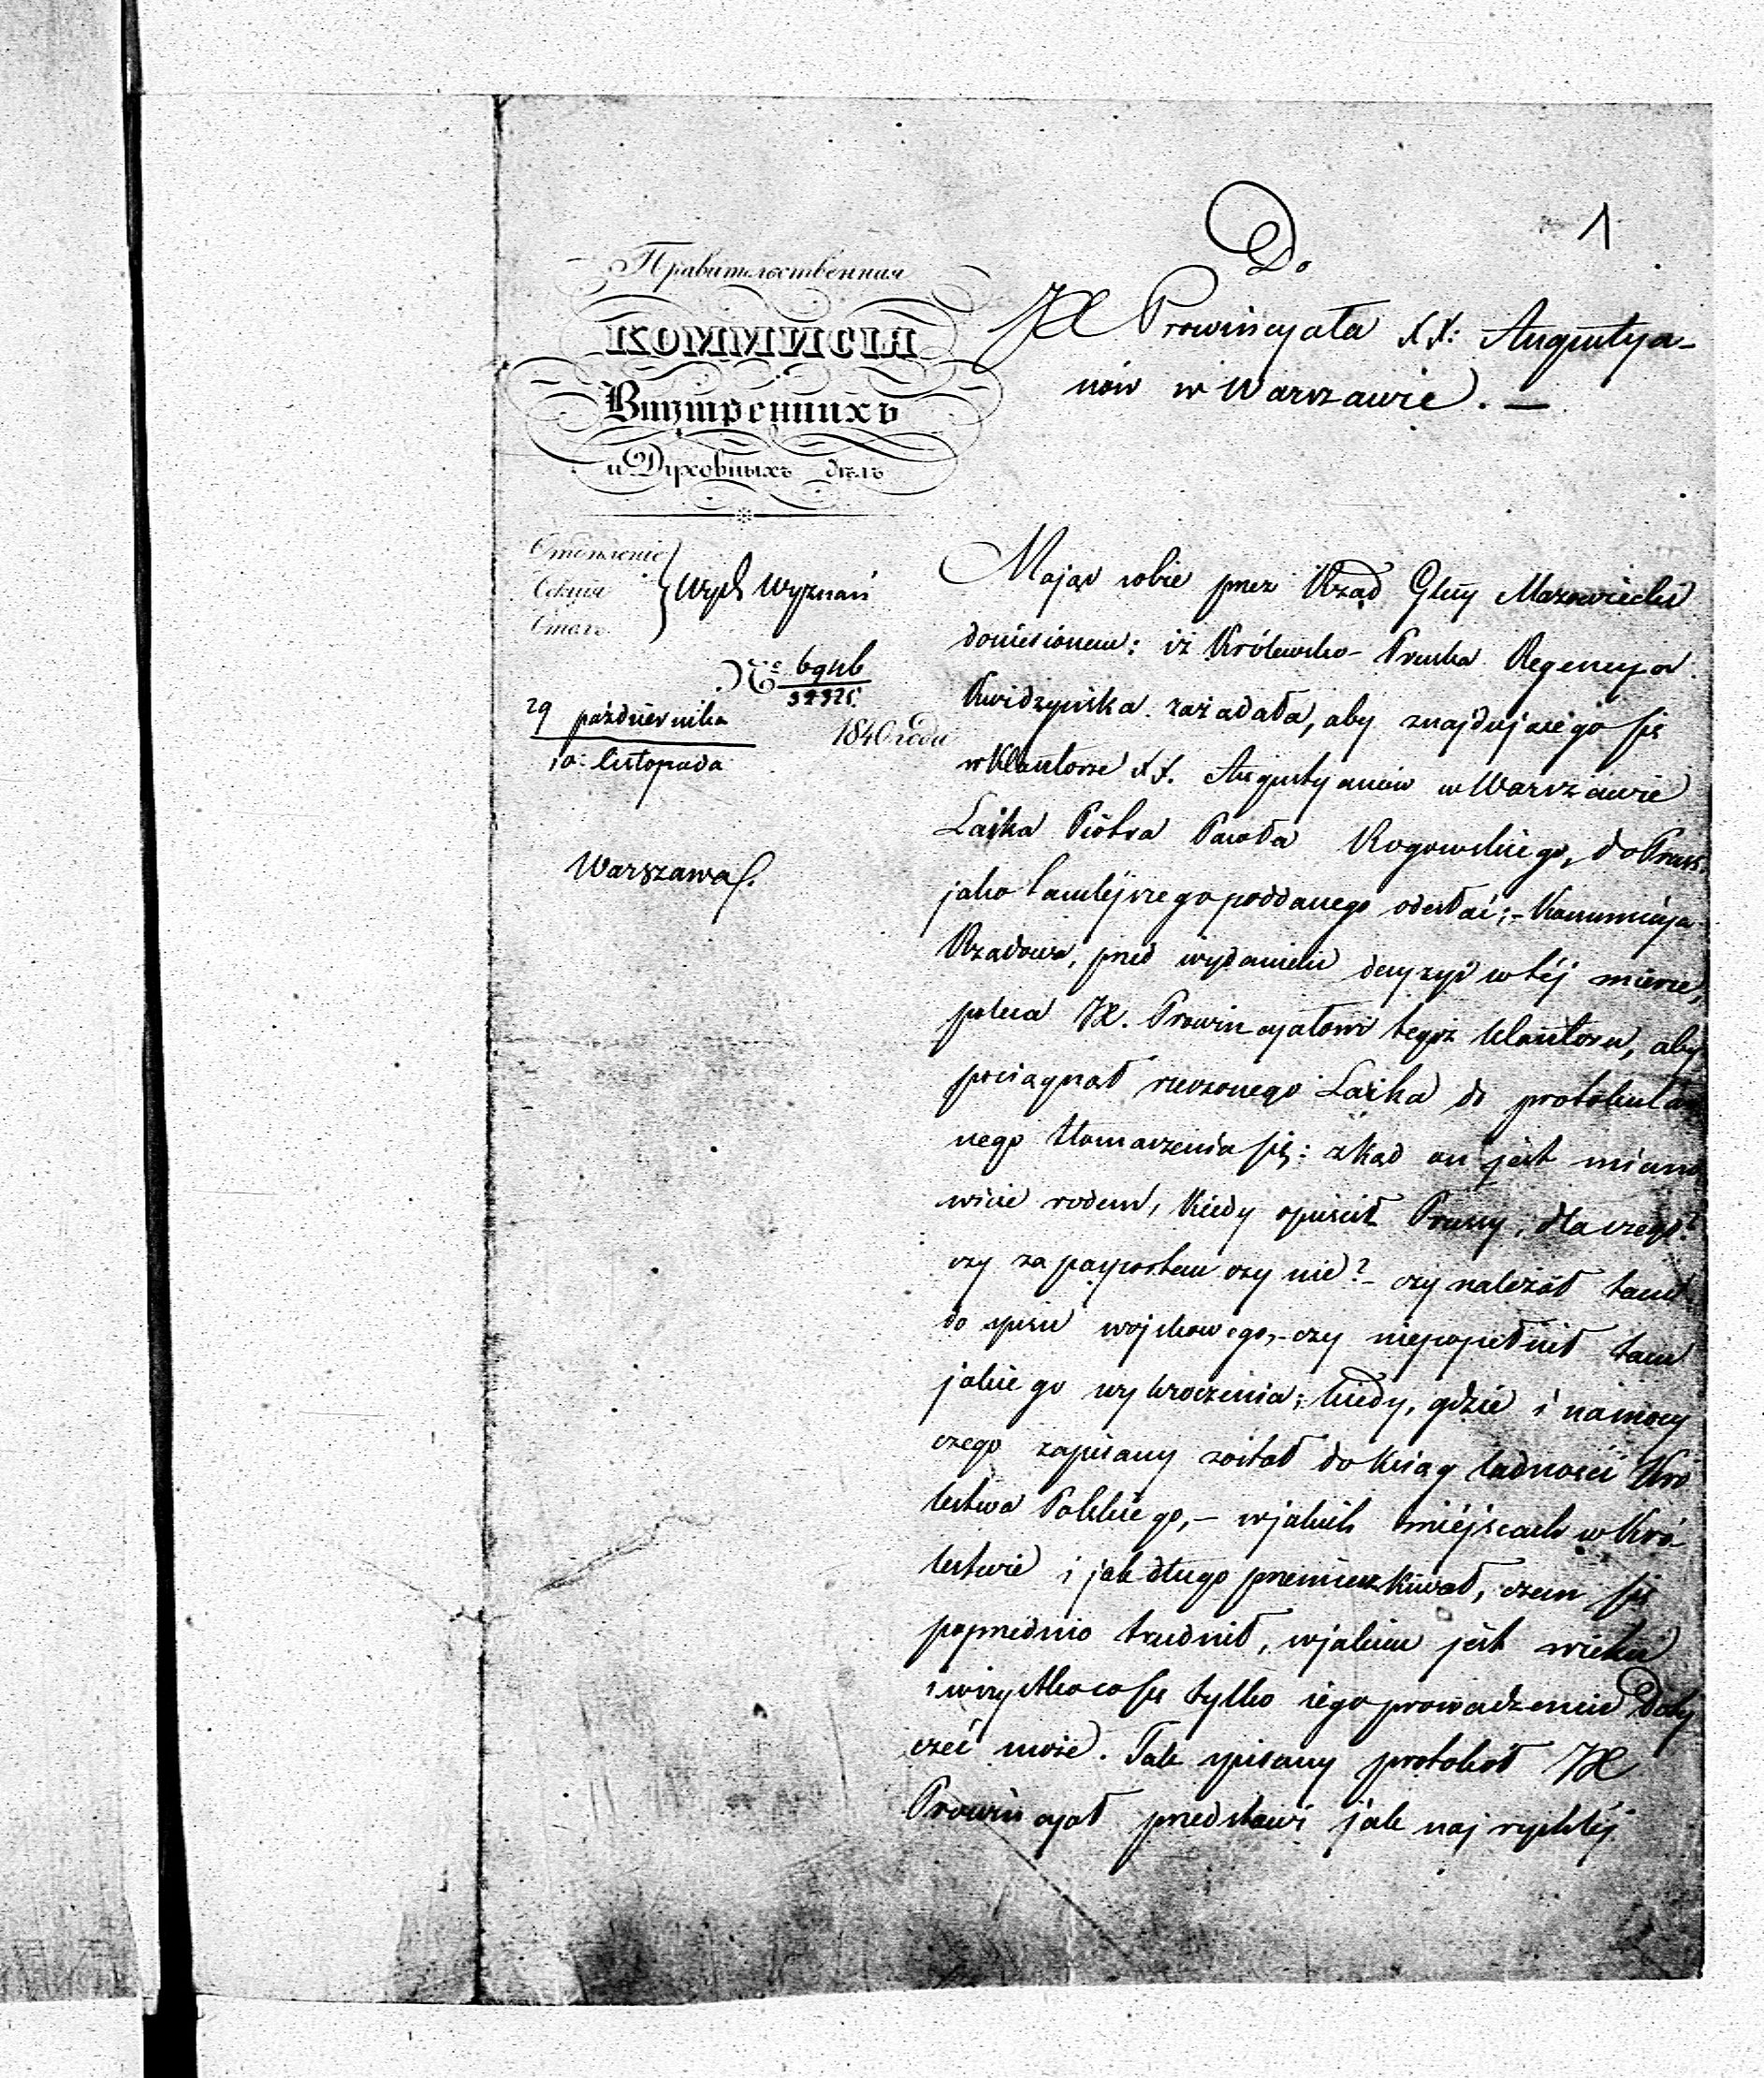 1
Правительственная
КОММИСІЯ
Внутреннихъ
и Духовныхъ дѣлъ
Отдѣленіе
Секція
Столъ
Wydz Wyznań
№
29 października
10 listopada
1840 года
Warszawa.
Do
JX Prowincyała XX: Augustya-
nów w Warszawie. —
Mając sobie przez Rząd Gbny Mazowiecki
doniesionem: iż Królewsko-Pruska Regencya
Kwidzyńska zażądała, aby znajdującego się
w Klasztorze XX. Augustyanów w Warszawie
Laika Piotra Pawła Rogowskiego, do Pruss,
jako tamtéjszego poddanego odesłać; - Kommissya
Rządowa, przed wydaniem decyzyi w téj mierze,
poleca JX. Prowincyałowi tegoż Klasztoru, aby
pociągnął rzeczonego Laika do protokular
nego tłomaczenia się: zkąd on jest miano
wicie rodem, kiedy opuścił Prussy, dla czego?
czy za paszportem czy nie? - czy należał tam
do spisu wojskowego, - czy niepopełnił tam
jakiego wykroczenia; kiedy, gdzie i na mocy
czego zapisany został do Ksiąg ludności Kró
lestwa Polskiego, - w jakich miéjscach w Kró-
lestwie i jak długo przemieszkiwał, czem się
poprzednio trudnił, w jakim jest wieku
i wszystko co się tylko jego prowadzenia doty
czeć może. Tak spisany protokół JX
Prowincyał przedstawi jak najrychléj